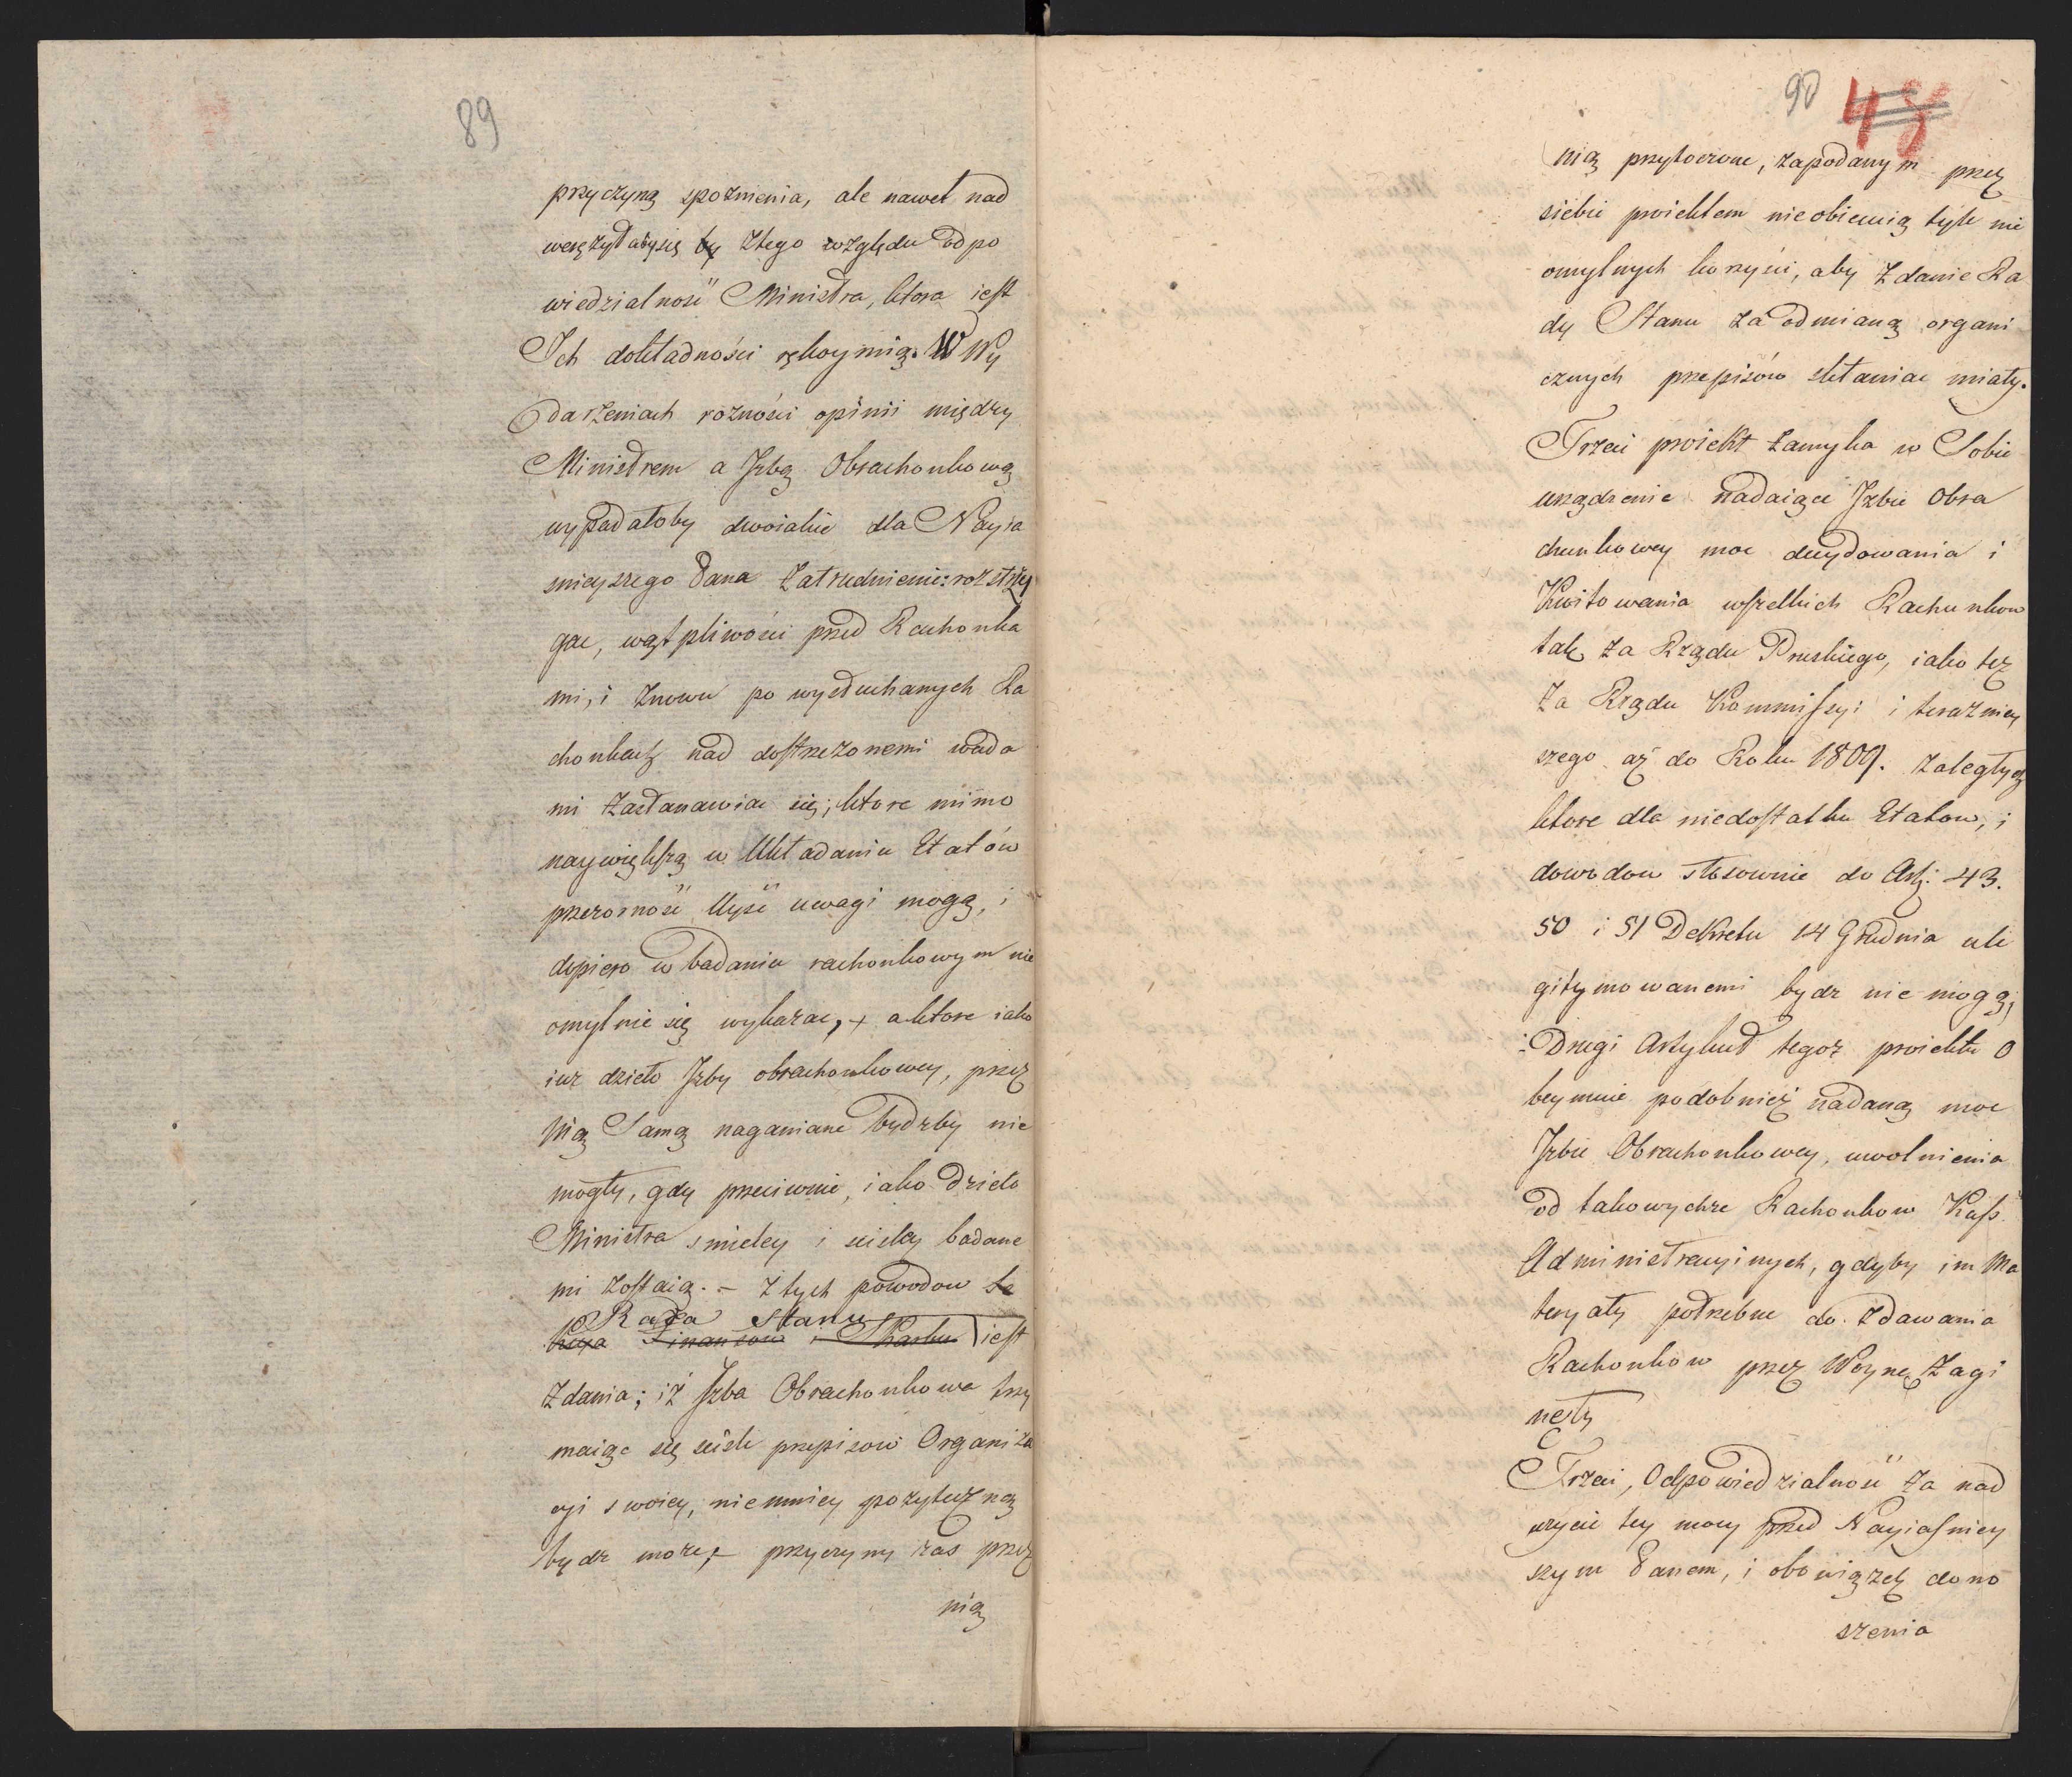 89
przyczyną spoznienia, ale nawet nad
weręzyłabysię by ztego względu odpo
wiedzialność Ministra, ktora iest
Ich dokładności rękoymią. W Wy
darzeniach rozności opinii między
Ministrem a Izbą Obrachonkową
wypadałoby dwoiakie dla Nayia
snieyszego Pana Zatrudnienie: rozstrzy
gac, wątpliwości przed Rachonka
mi, i znowu po wysłuchanych Ra
chonkach nad dostrzezonemi wada
mi zastanawiac się; ktore mimo
naywiększą w Układaniu Etatów
przezorność Uyść uwagi mogą, i
dopiero w badaniu rachonkowym nie
omylnie się wykazac, + a ktore iako
iuz dzieło Izby obrachonkowey, przez
Nią Samą naganiane bydzby nie
mogły, gdy przeciwnie, iako Dzieło
Ministra smieley i scisley badane
mi zostaią. - Z tych powodow Se
Rada Stanu
kcya Finansow i Skarbu iest
Zdania; iż Izba Obrachonkowa trzy
maiąc się scisle przepisow Organiza
cyi swoiey, niemniey pozyteczną
bydz moze, - przyczyny zas przez
nią
90
48
nią przytoczone, zapodanym przez
siebie proiektem nieobiecuią tyle nie
omylnych korzyści, aby Zdanie Ra
dy Stanu za odmianą organi
cznych przepisów skłaniac miały.
Trzeci proiekt zamyka w Sobie
urządzenie nadaiące Izbie Obra
chunkowey moc decydowania i
Kwitowania wszelkich Rachunkow
tak za Rządu Pruskiego, iako tez
za Rządu Kommissyi i terazniey
szego aż do Roku 1809. zaległych
ktore dla niedostatku Etatow, i
dowodow stosownie do Art: 43.
50 i 51 Dekretu 14 Grudnia ule
gitymowanemi bydz nie mogą;
: Drugi Artykuł tegoz proiektu O
beymuie podobnież nadaną moc
Izbie Obrachonkowey, uwolnienia
od takowychze Rachonkow Kass.
Administracyinych, gdyby im Ma
teryały potrzebne do Zdawania
Rachonkow przez Woynę Zagi
nęły
Trzeci, Odpowiedzialność za nad
uzycie tey mocy przed Nayiasniey
szym Panem, i obowiązek dono
szenia